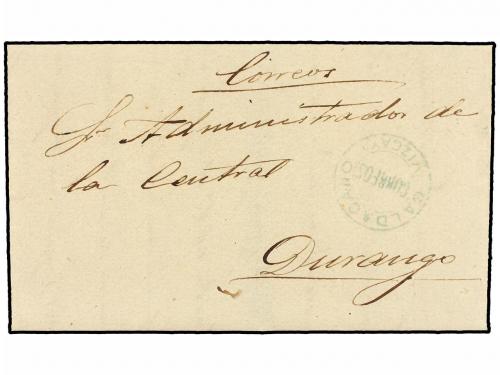 Correos
Sr Administrador de
la Central
Durango
CORREOS
VIZCAYA